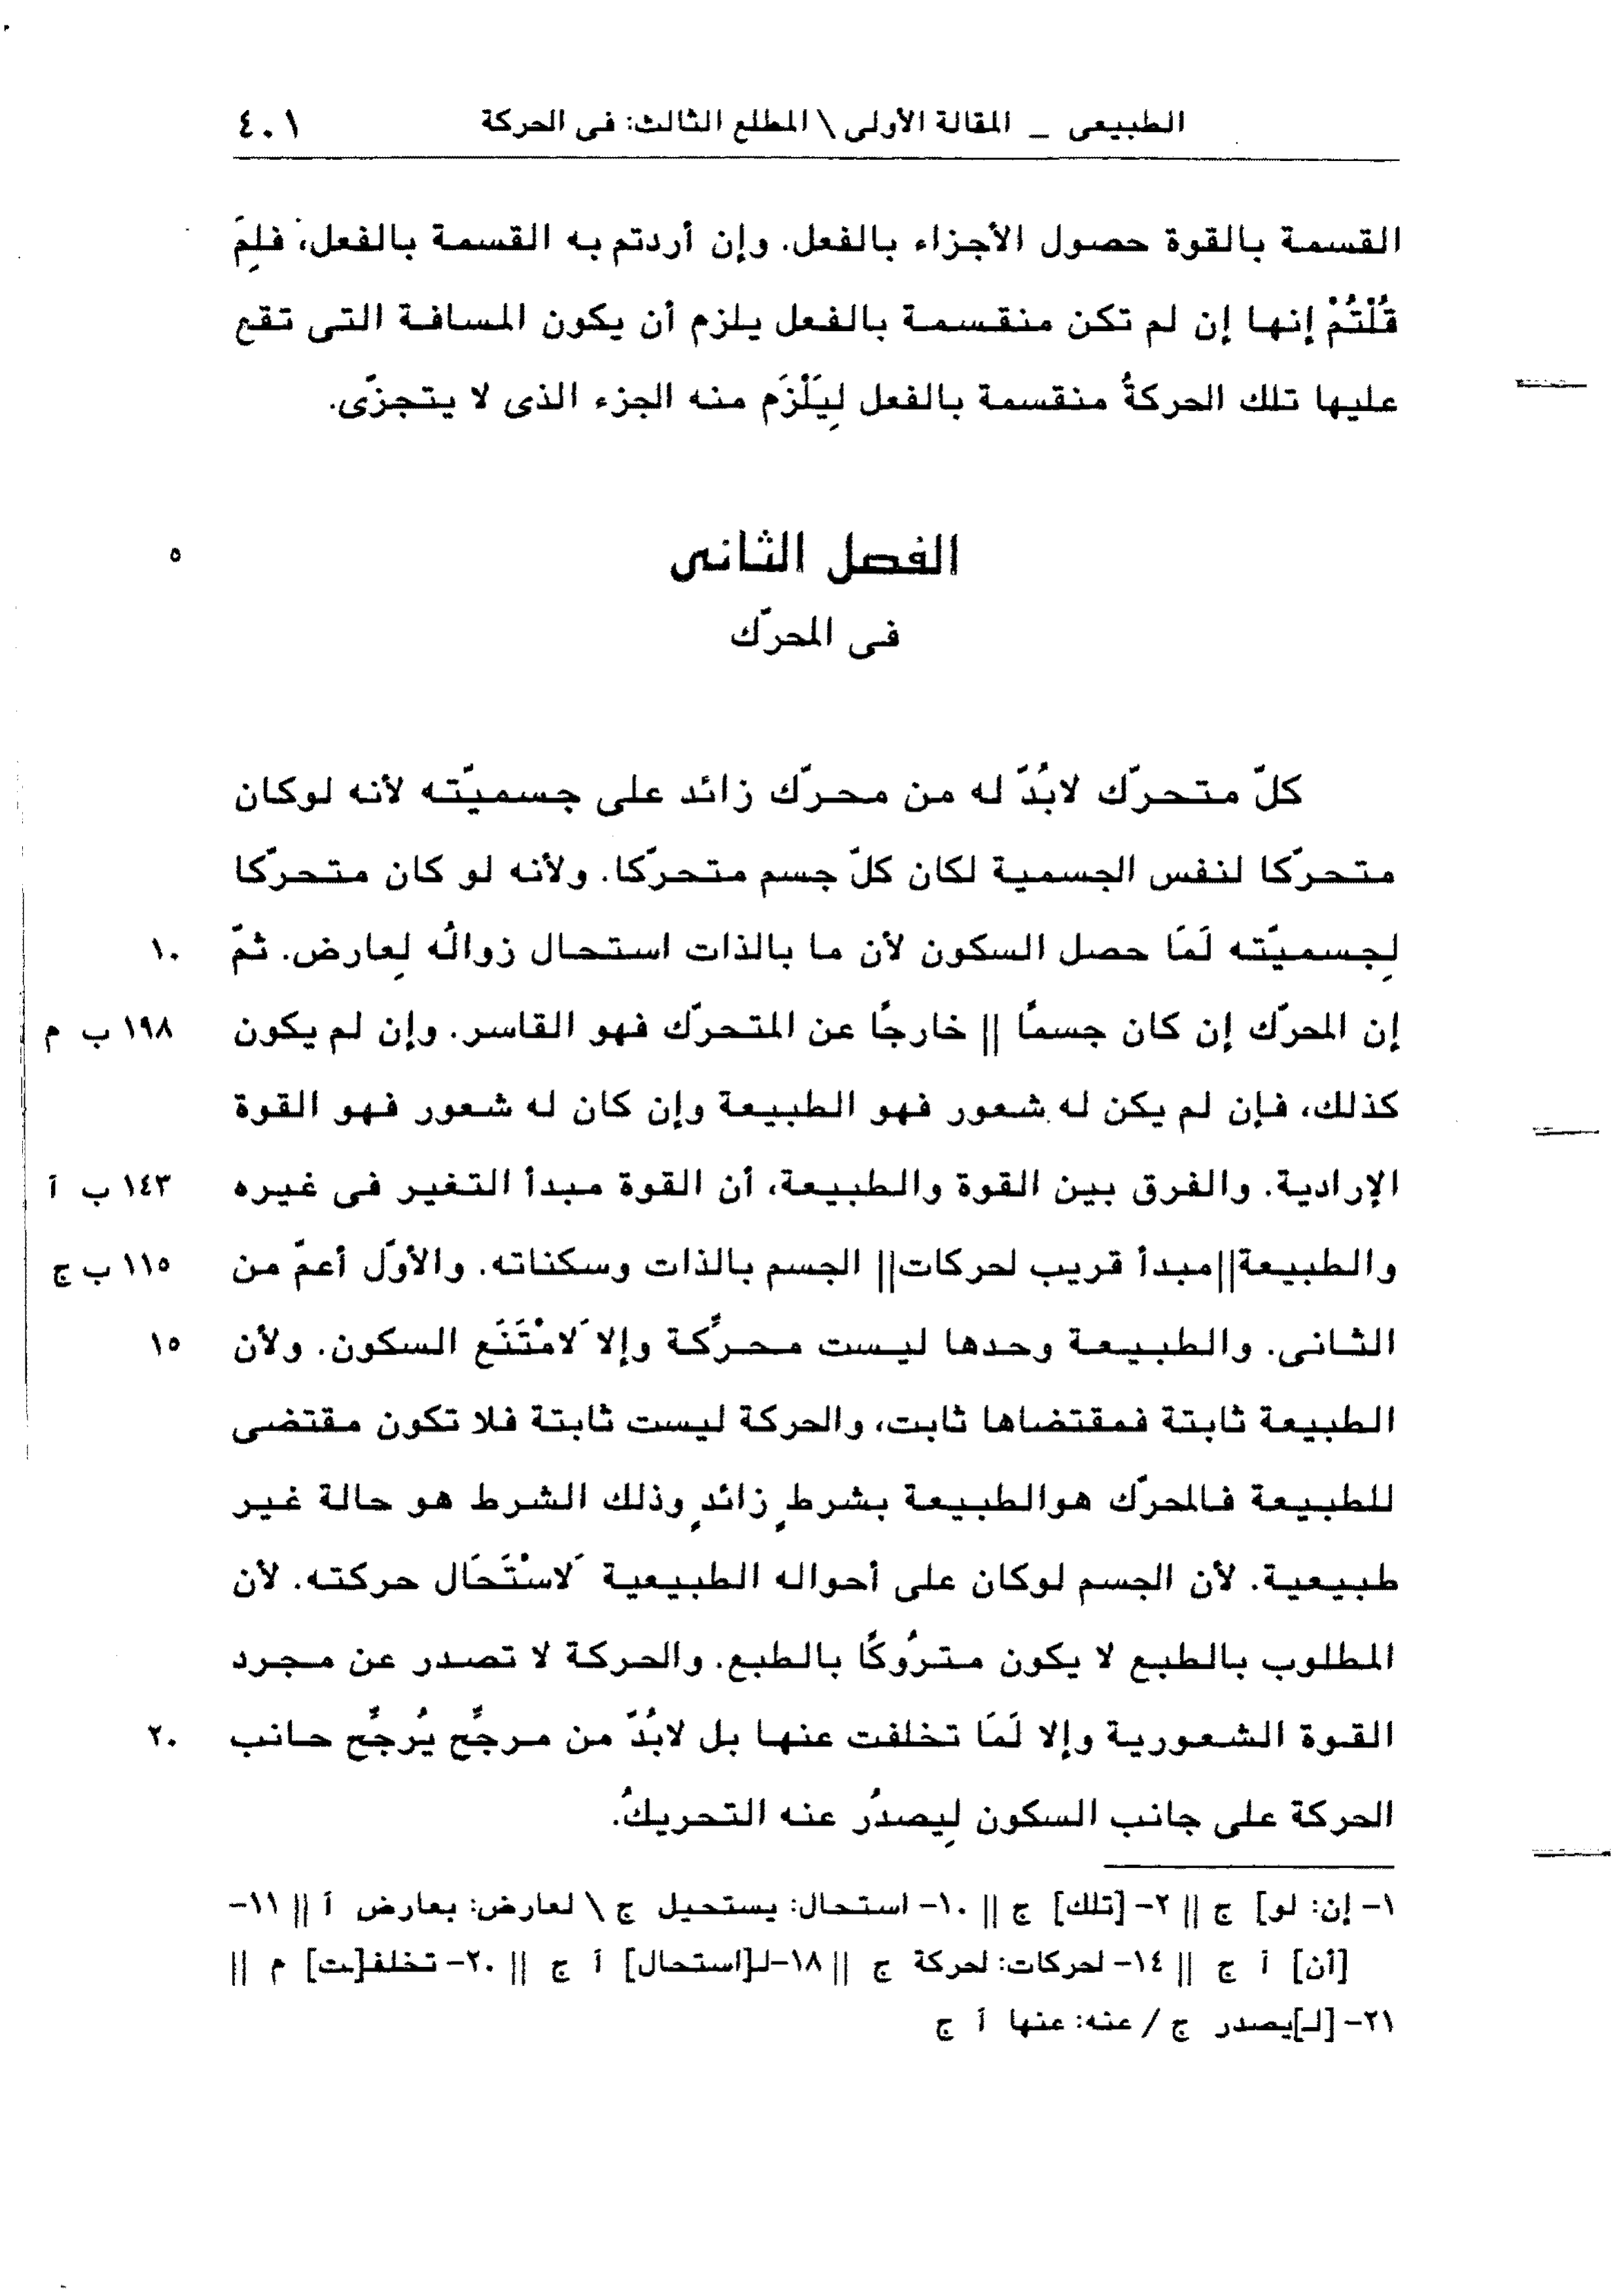 الطبيعى _ المقالة الأولى \ المطلع الثالث: فى الحركة ٤٠١
القسمة بالقوة حصول الأجزاء بالفعل. وإن أردتم به القسمة بالفعل، فلِمَ
قُلْتُمْ إنها إن لم تكن منقسمة بالفعل يلزم أن يكون المسافة التى تقع
عليها تلك الحركةُ منقسمة بالفعل لِيَلْزَم منه الجزء الذى لا يتجزّى.
الفصل الثانى ٥
فى المحرّك
كلّ متحرّك لابُدّ له من محرّك زائد على جسميّته لأنه لوكان
متحركّا لنفس الجسمية لكان كلّ جسم متحركّا. ولأنه لو كان متحركّا
لِجسميّته لَمَا حصل السكون لأن ما بالذات استحال زوالُه لِعارض. ثمّ ١٠
إن المحرّك إن كان جسماً || خارجاً عن المتحرّك فهو القاسر. وإن لم يكون ١٩٨ ب م
كذلك، فإن لم يكن له شعور فهو الطبيعة وإن كان له شعور فهو القوة
الإرادية. والفرق بين القوة والطبيعة، أن القوة مبدأ التغير فى غيره ١٤٣ ب آ
والطبيعة||مبدأ قريب لحركات|| الجسم بالذات وسكناته. والأوّل أعمّ من ١١٥ ب ج
الثانى. والطبيعة وحدها ليست محرِّكة وإلا لَامْتَنَع السكون. ولأن ١٥
الطبيعة ثابتة فمقتضاها ثابت، والحركة ليست ثابتة فلا تكون مقتضى
للطبيعة فالمحرّك هوالطبيعة بشرطٍ زائدٍ وذلك الشرط هو حالة غير
طبيعية. لأن الجسم لوكان على أحواله الطبيعية لَاسْتَحَال حركته. لأن
المطلوب بالطبع لا يكون متروُكًا بالطبع. والحركة لا تصدر عن مجرد
القوة الشعورية وإلا لَمَا تخلفت عنها بل لابُدّ من مرجِّح يُرجِّح حانب ٢٠
الحركة على جانب السكون لِيصدُر عنه التحريكُ.
١- إن: لو] ج || ٢- [تلك] ج || ١٠- استحال: يستحيل ج \ لعارض: بعارض آ || ١١-
[أن] آ ج || ١٤- لحركات: لحركة ج || ١٨- لـ[استحال] آ ج || ٢٠- تخلفـ[ـت] م ||
٢١- [لـ]يصدر ج / عنه: عنها آ ج